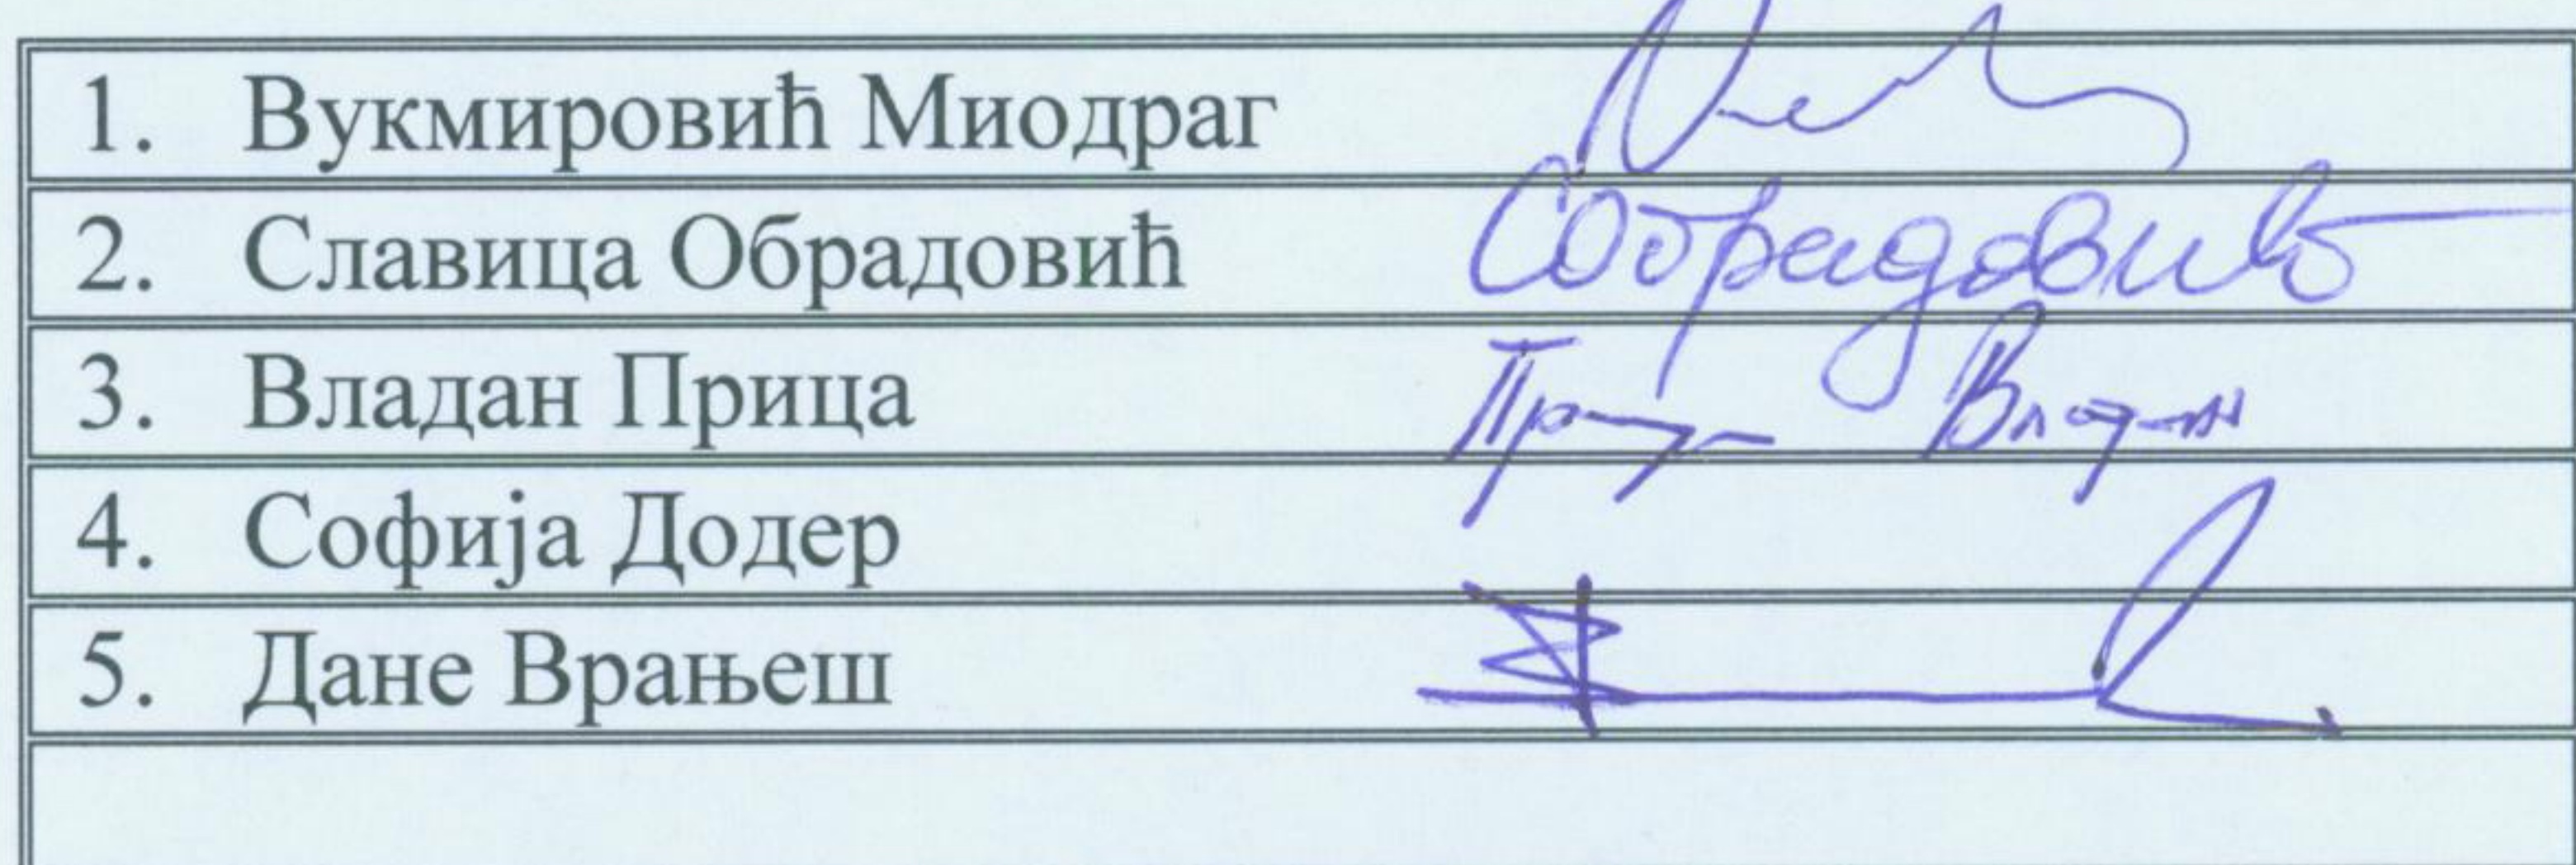 1. Вукмировић Миодраг
2. Славица Обрадовић СОбрадовић
3. Владан Прица Прица Владан
4. Софија Додер
5. Дане Врањеш